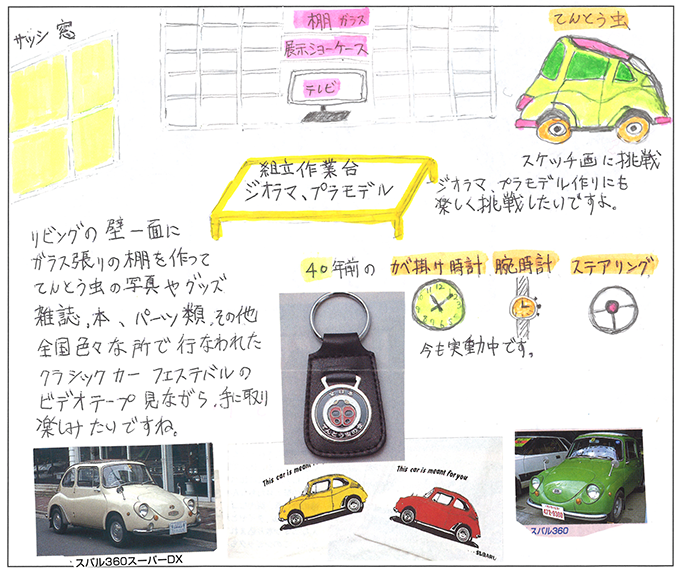 サッシ 窓
棚 ガラス
展示ショーケース
テレビ
てんとう虫
組立作業台
ジオラマ、プラモデル
スケッチ画に挑戦
ジオラマ、プラモデル作りにも
楽しく挑戦したいですよ。
リビングの壁一面に
ガラス張りの棚を作って
てんとう虫の写真やグッズ
雑誌,本、パーツ類,その他
全国色々な所で行なわれた
クラシックカー フェステバルの
ビデオテープ見ながら,手に取り
楽しみたいですね。
40年前の カベ掛け時計 腕時計 ステアリング
今も実動中です。
てんとう虫の会
This car is meant
This car is meant for you
SUBARU
スバル360スーパーDX
スバル360